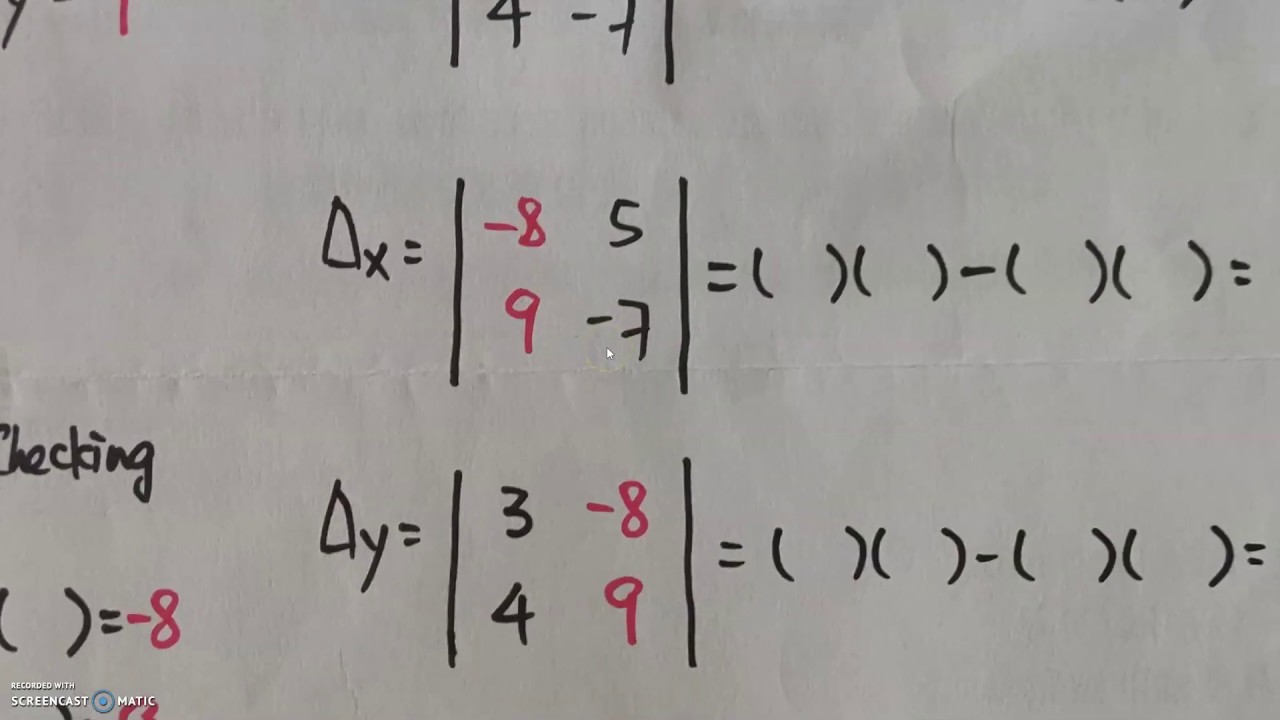 4 -7
Δx = | -8 5 | = ( )( ) - ( )( ) =
9 -7
Checking
Δy = | 3 -8 | = ( )( ) - ( )( ) =
4 9
( ) = -8
RECORDED WITH
SCREENCAST MATIC